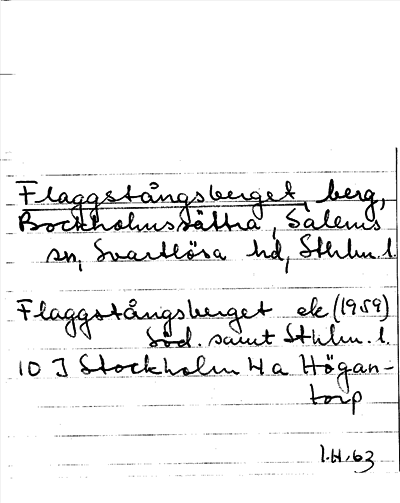 Flaggstångsberget, berg,
Bockholmssättra, Salems
sn, Svartlösa hd, Sthlm. l.
Flaggstångsberget ek (1959)
Söd. samt Sthlm. l.
10 I Stockholm 4 a Högan-
torp
63